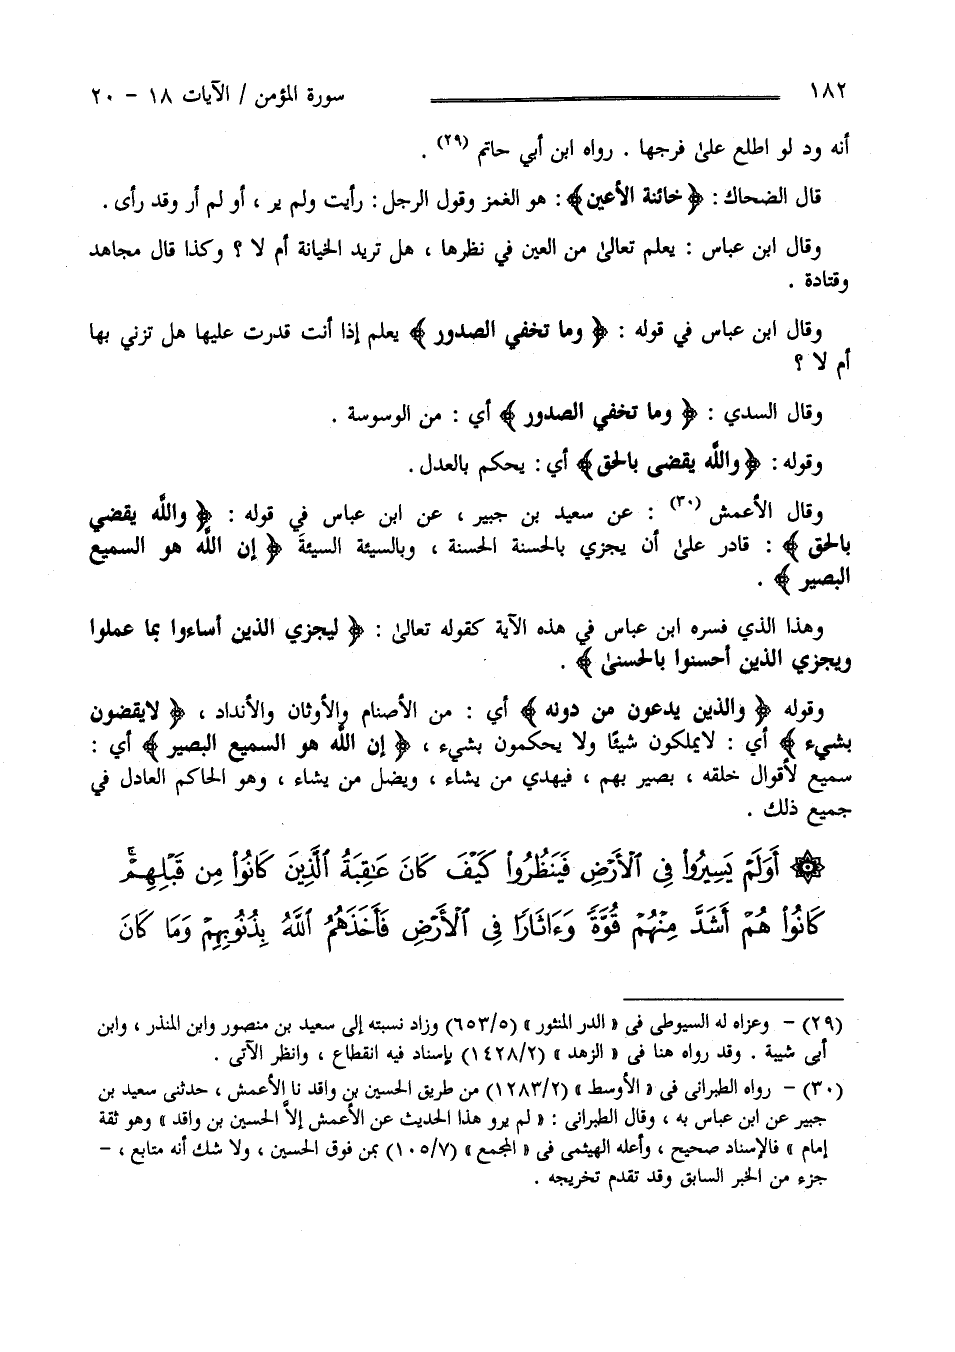 ١٨٢ سورة المؤمن / الآيات ١٨ - ٢٠
أنه ود لو اطلع علىٰ فرجها . رواه ابن أبي حاتم (٢٩) .
قال الضحاك : ﴿ خائنة الأعين ﴾ : هو الغمز وقول الرجل : رأيت ولم ير ، أو لم أر وقد رأى .
وقال ابن عباس : يعلم تعالىٰ من العين في نظرها ، هل تريد الخيانة أم لا ؟ وكذا قال مجاهد
وقتادة .
وقال ابن عباس في قوله : ﴿ وما تخفي الصدور ﴾ يعلم إذا أنت قدرت عليها هل تزني بها
أم لا ؟
وقال السدي : ﴿ وما تخفي الصدور ﴾ أي : من الوسوسة .
وقوله : ﴿ واللَّه يقضى بالحق ﴾ أي : يحكم بالعدل .
وقال الأعمش (٣٠) : عن سعيد بن جبير ، عن ابن عباس في قوله : ﴿ واللَّه يقضي
بالحق ﴾ : قادر علىٰ أن يجزي بالحسنة الحسنة ، وبالسيئة السيئةَ ﴿ إن اللَّه هو السميع
البصير ﴾ .
وهذا الذي فسره ابن عباس في هذه الآية كقوله تعالىٰ : ﴿ ليجزي الذين أساءوا بما عملوا
ويجزي الذين أحسنوا بالحسنىٰ ﴾ .
وقوله ﴿ والذين يدعون من دونه ﴾ أي : من الأصنام والأوثان والأنداد ، ﴿ لايقضون
بشيء ﴾ أي : لايملكون شيئًا ولا يحكمون بشيء ، ﴿ إن اللَّه هو السميع البصير ﴾ أي :
سميع لأقوال خلقه ، بصير بهم ، فيهدي من يشاء ، ويضل من يشاء ، وهو الحاكم العادل في
جميع ذلك .
۞ أَوَلَمْ يَسِيرُوا۟ فِى ٱلْأَرْضِ فَيَنظُرُوا۟ كَيْفَ كَانَ عَـٰقِبَةُ ٱلَّذِينَ كَانُوا۟ مِن قَبْلِهِمْ ۚ
كَانُوا۟ هُمْ أَشَدَّ مِنْهُمْ قُوَّةً وَءَاثَارًا فِى ٱلْأَرْضِ فَأَخَذَهُمُ ٱللَّهُ بِذُنُوبِهِمْ وَمَا كَانَ
(٢٩) - وعزاه له السيوطى فى « الدر المنثور » (٦٥٣/٥) وزاد نسبته إلى سعيد بن منصور وابن المنذر ، وابن
أبى شيبة . وقد رواه هنا فى « الزهد » (١٤٢٨/٢) بإسناد فيه انقطاع ، وانظر الآتى .
(٣٠) - رواه الطبرانى فى « الأوسط » (١٢٨٣/٢) من طريق الحسين بن واقد نا الأعمش ، حدثنى سعيد بن
جبير عن ابن عباس به ، وقال الطبرانى : « لم يرو هذا الحديث عن الأعمش إلاَّ الحسين بن واقد » وهو ثقة
إمام » فالإسناد صحيح ، وأعله الهيثمى فى « المجمع » (١٠٥/٧) بمن فوق الحسين ، ولا شك أنه متابع ، -
جزء من الخبر السابق وقد تقدم تخريجه .